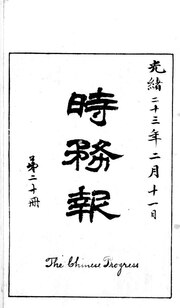 光緒二十三年二月十一日
時務報
第二十冊
The Chinese Progress